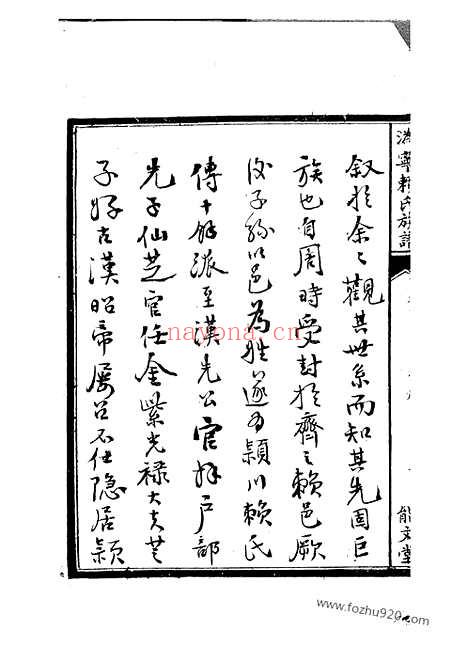 寧賴氏族譜
能文堂
叙於余々觀其世系而知其先固巨
族也自周時受封於齊之賴邑厥
後子孫以邑為姓遂為潁川賴氏
傳十餘派至漢先公官拜戶部
先子仙芝官任金紫光祿大夫芝
子好古漢昭帝屢召不仕隱居潁
nayona.cn
www.fozhu920.com